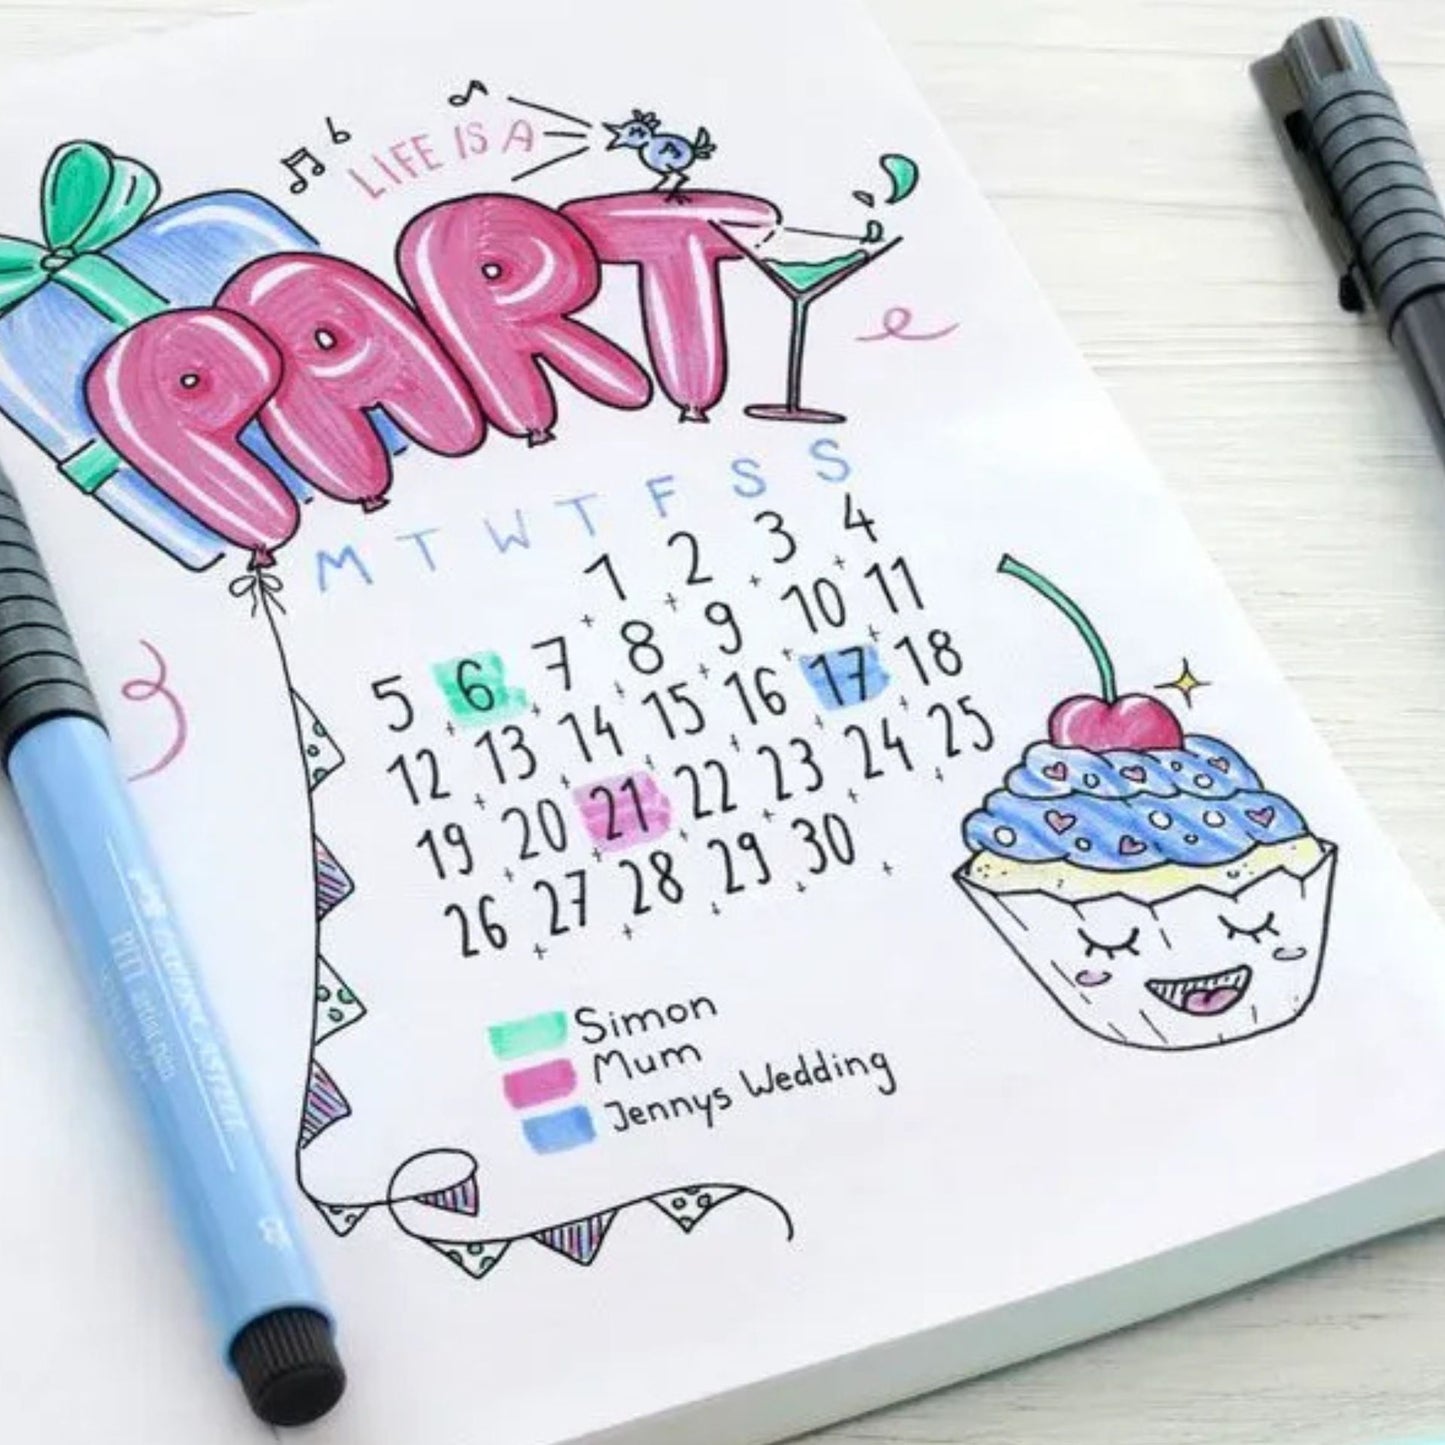 LIFE IS A
PARTY
M T W T F S S
1 2 3 4
5 6 7 8 9 10 11
12 13 14 15 16 17 18
19 20 21 22 23 24 25
26 27 28 29 30
Simon
Mum
Jennys Wedding
FABER-CASTELL
PITT artist pen